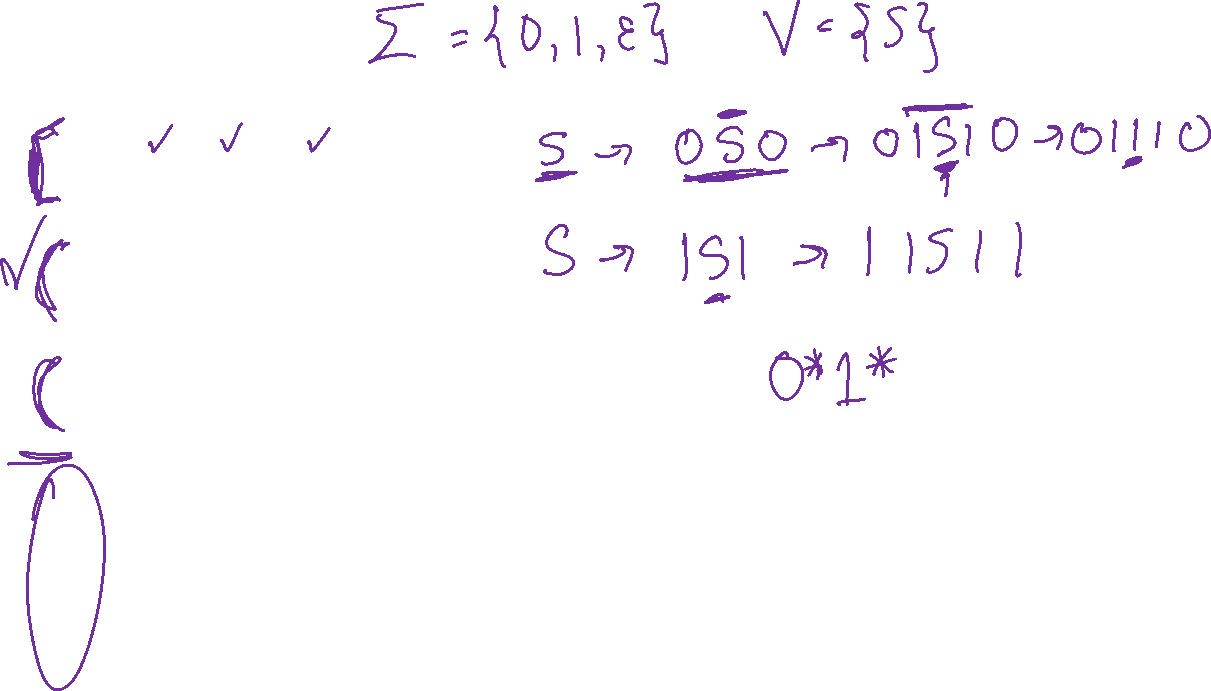 Σ = {0, 1, ε} V = {S}
✓ ✓ ✓ S → 0S0 → 01S10 → 01110
S → 1S1 → 11S11
0*1*